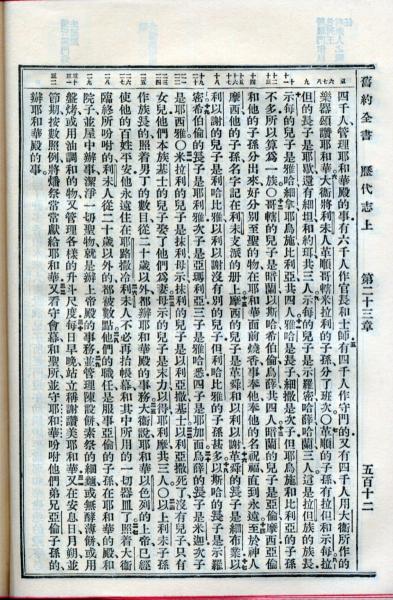 舊約全書 歷代志上 第二十三章 五百十二
四千人管理耶和華殿的事有六千人作官長和士師有四千人作守門的又有四千人用大衛所作的
樂器頌讚耶和華大衛將利未人革順哥轄米拉利的子孫分了班次〇革順的子孫有拉但和示每拉
但的長子是耶歇還有細坦和約珥共三人示每的兒子是示羅密哈薛哈蘭三人這是拉但族的族長
示每的兒子是雅哈細拿耶烏施比利亞共四人雅哈是長子細撒是次子但耶烏施和比利亞的子孫
不多所以算爲一族〇哥轄的兒子是暗蘭以斯哈希伯倫烏薛共四人暗蘭的兒子是亞倫摩西亞倫
和他的子孫分出來好分別至聖的物在耶和華面前燒香事奉他奉他的名祝福直到永遠至於神人
摩西他的子孫名字記在利未支派的册上摩西的兒子是革舜和以利以謝革舜的長子是細布業以
利以謝的兒子是利哈比雅以利以謝沒有別的兒子但利哈比雅的子孫甚多以斯哈的長子是示羅
密希伯倫的長子是耶利雅次子是亞瑪利亞三子是雅哈悉四子是耶加面烏薛的長子是米迦次子
是耶西雅〇米拉利的兒子是抹利母示抹利的兒子是以利亞撒基士以利亞撒死了沒有兒子只有
女兒他們本族基士的兒子娶了他們爲妻母示的兒子是末力以得耶利摩共三人〇以上利未子孫
作族長的照着男丁的數目從二十歲以外都辦耶和華殿的事務大衛說耶和華以色列的上帝已經
使他的百姓平安他永遠住在耶路撒冷利未人不必再抬帳幕和其中所用的一切器皿了照着大衛
臨終所吩咐的利未人從二十歲以外的都被數點他們的職任是服事亞倫的子孫在耶和華的殿和
院子並屋中辦事潔淨一切聖物就是辦上帝殿的事務並管理陳設餅素祭的細麵或無酵薄餅或用
盤烤或用油調和的物又管理各樣的升斗尺度每日早晚站立稱謝讚美耶和華又在安息日月朔並
節期按數照例將燔祭常常獻給耶和華又看守會幕和聖所並守耶和華吩咐他們弟兄亞倫子孫的
辦耶和華殿的事